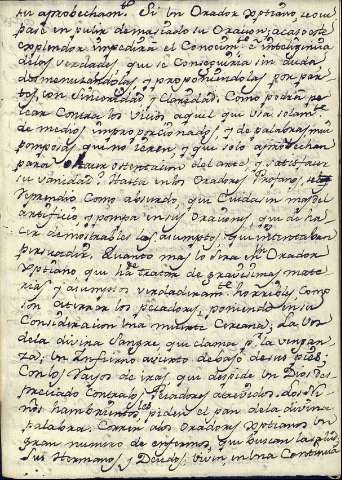 su aprobecham.to Si un Orador Xptiano se ocu
pase en pulir demasiado su Oracion, acaso este
explendor impedira el Conocim.to e inteligencia
de los verdades, que se Conseguiria sin duda
dosmenuzandolas y proponiendolas por par
tes, con Sinceridad y Claridad. Como podra pre
dicar Contra los Vicios aquel que Usa solam.te
de medios improporcionados, y de palabras mui
pomposas que no ieren y que solo aprobechan
para ostentacion del arte, y satisfacer
su vanidad? Hasta en los Oradores Profanos, se
reprendio como absurdo, que Cuidasen mas del
artificio y pompa en sus Oraciones, que de ha
cer demostrables los asumptos que intentaban
persuadir. Quanto mas lo sera en un Orador
Xptiano que ha de tratar de gravisimas mate
rias y asumptos verdaderam.te horribles como
son aterrar los pecadores, poniendo en su
Consideracion una muerte Cercana; La Voz
de la divina Sangre, que clama p.r la vengan
za; Un Infierno avierto debajo de sus pies;
Con los Rayos de iras que despide un Dios des
preciado Contra los Pecadores atrevidos. Los Ni
ños hambrientos les piden el pan de la divina
palabra. Corren a los Oradores Xptianos un
gran numero de enfermos, que buscan la salud
Sus Hermanos, y Deudos, viven en una Continua